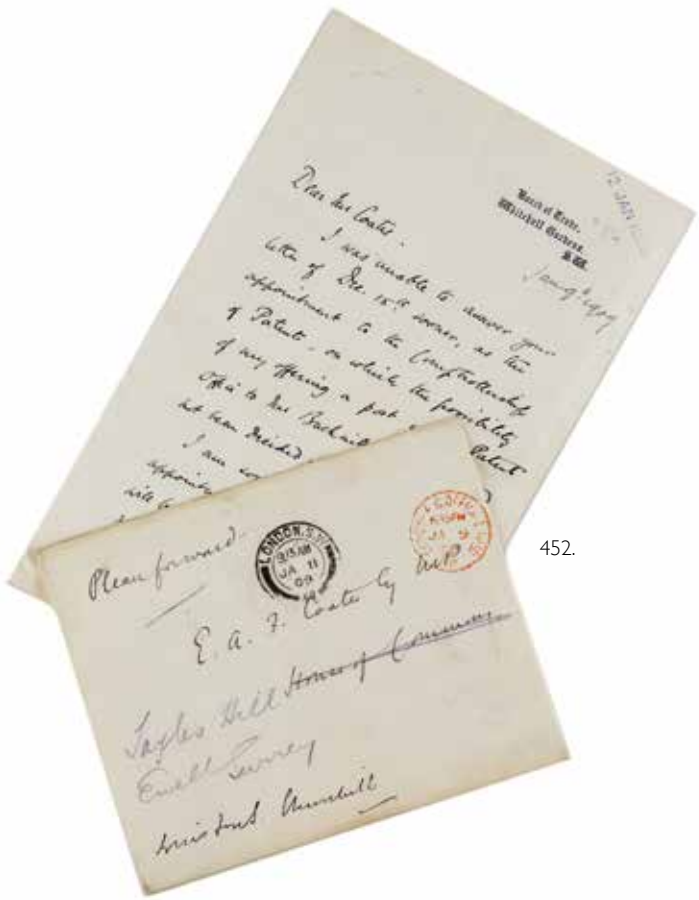 12 JAN
Board of Trade,
Whitehall Gardens,
S.W.
Jan 9th 1909
Dear Mr Coates.
I was unable to answer your
letter of Dec. 15th sooner, as the
appointment to the Comptrollership
of Patents, on which the possibility
of my offering a post Patent
Office to Mr
not been decided
I am
appointm
will
452.
Please forward.
LONDON. S.W.
9.15 AM
JA 11
09
JA 9
E. A. F. Coates Esq MP
House of Commons
Tayles Hill
Ewell Surrey
Winston S Churchill